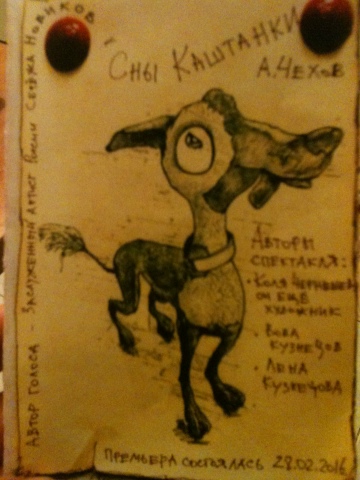 "Сны Каштанки"
А. Чехов
Авторы
спектакля:
• Коля Чернышев
он ещё
художник
• Вова
Кузнецов
• Лена
Кузнецова
Премьера состоялась 28.02.2016
Автор голоса – Заслуженный артист России Серёжа Новиков